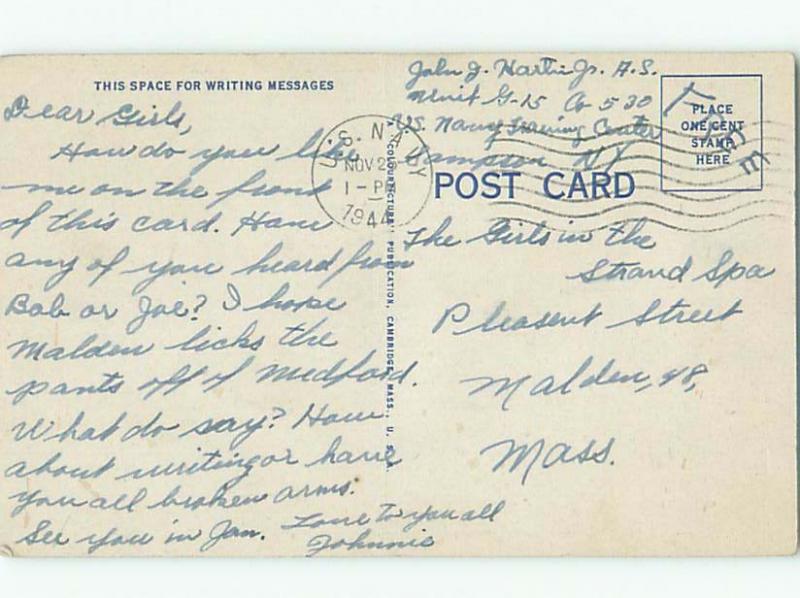 THIS SPACE FOR WRITING MESSAGES
Dear Girls,
How do you like
me on the front
of this card. Have
any of you heard from
Bob or Joe? I hope
Malden licks the
pants off of Medford.
What do say? How
about writing or have
you all broken arms.
See you in Jan. Love to you all
Johnnie
A "COLOURPICTURE" PUBLICATION, CAMBRIDGE, MASS., U. S. A.
John J. Jr. A.S.
Unit G-15 Co-530
U.S. Navy Training Center
Sampson NY
U.S. NAVY
NOV 2
1-PM
1944
FREE
PLACE
ONE CENT
STAMP
HERE
POST CARD
The Girls in the
Strand Spa
Pleasent Street
Malden, 48,
Mass.